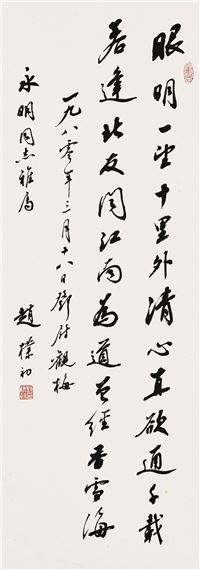 眼明一望十里外清心真欲通千載
若逢北友問江南為道曾經香雪海
一九八零年三月十八日鄧尉觀梅
永明同志雅屬
趙樸初